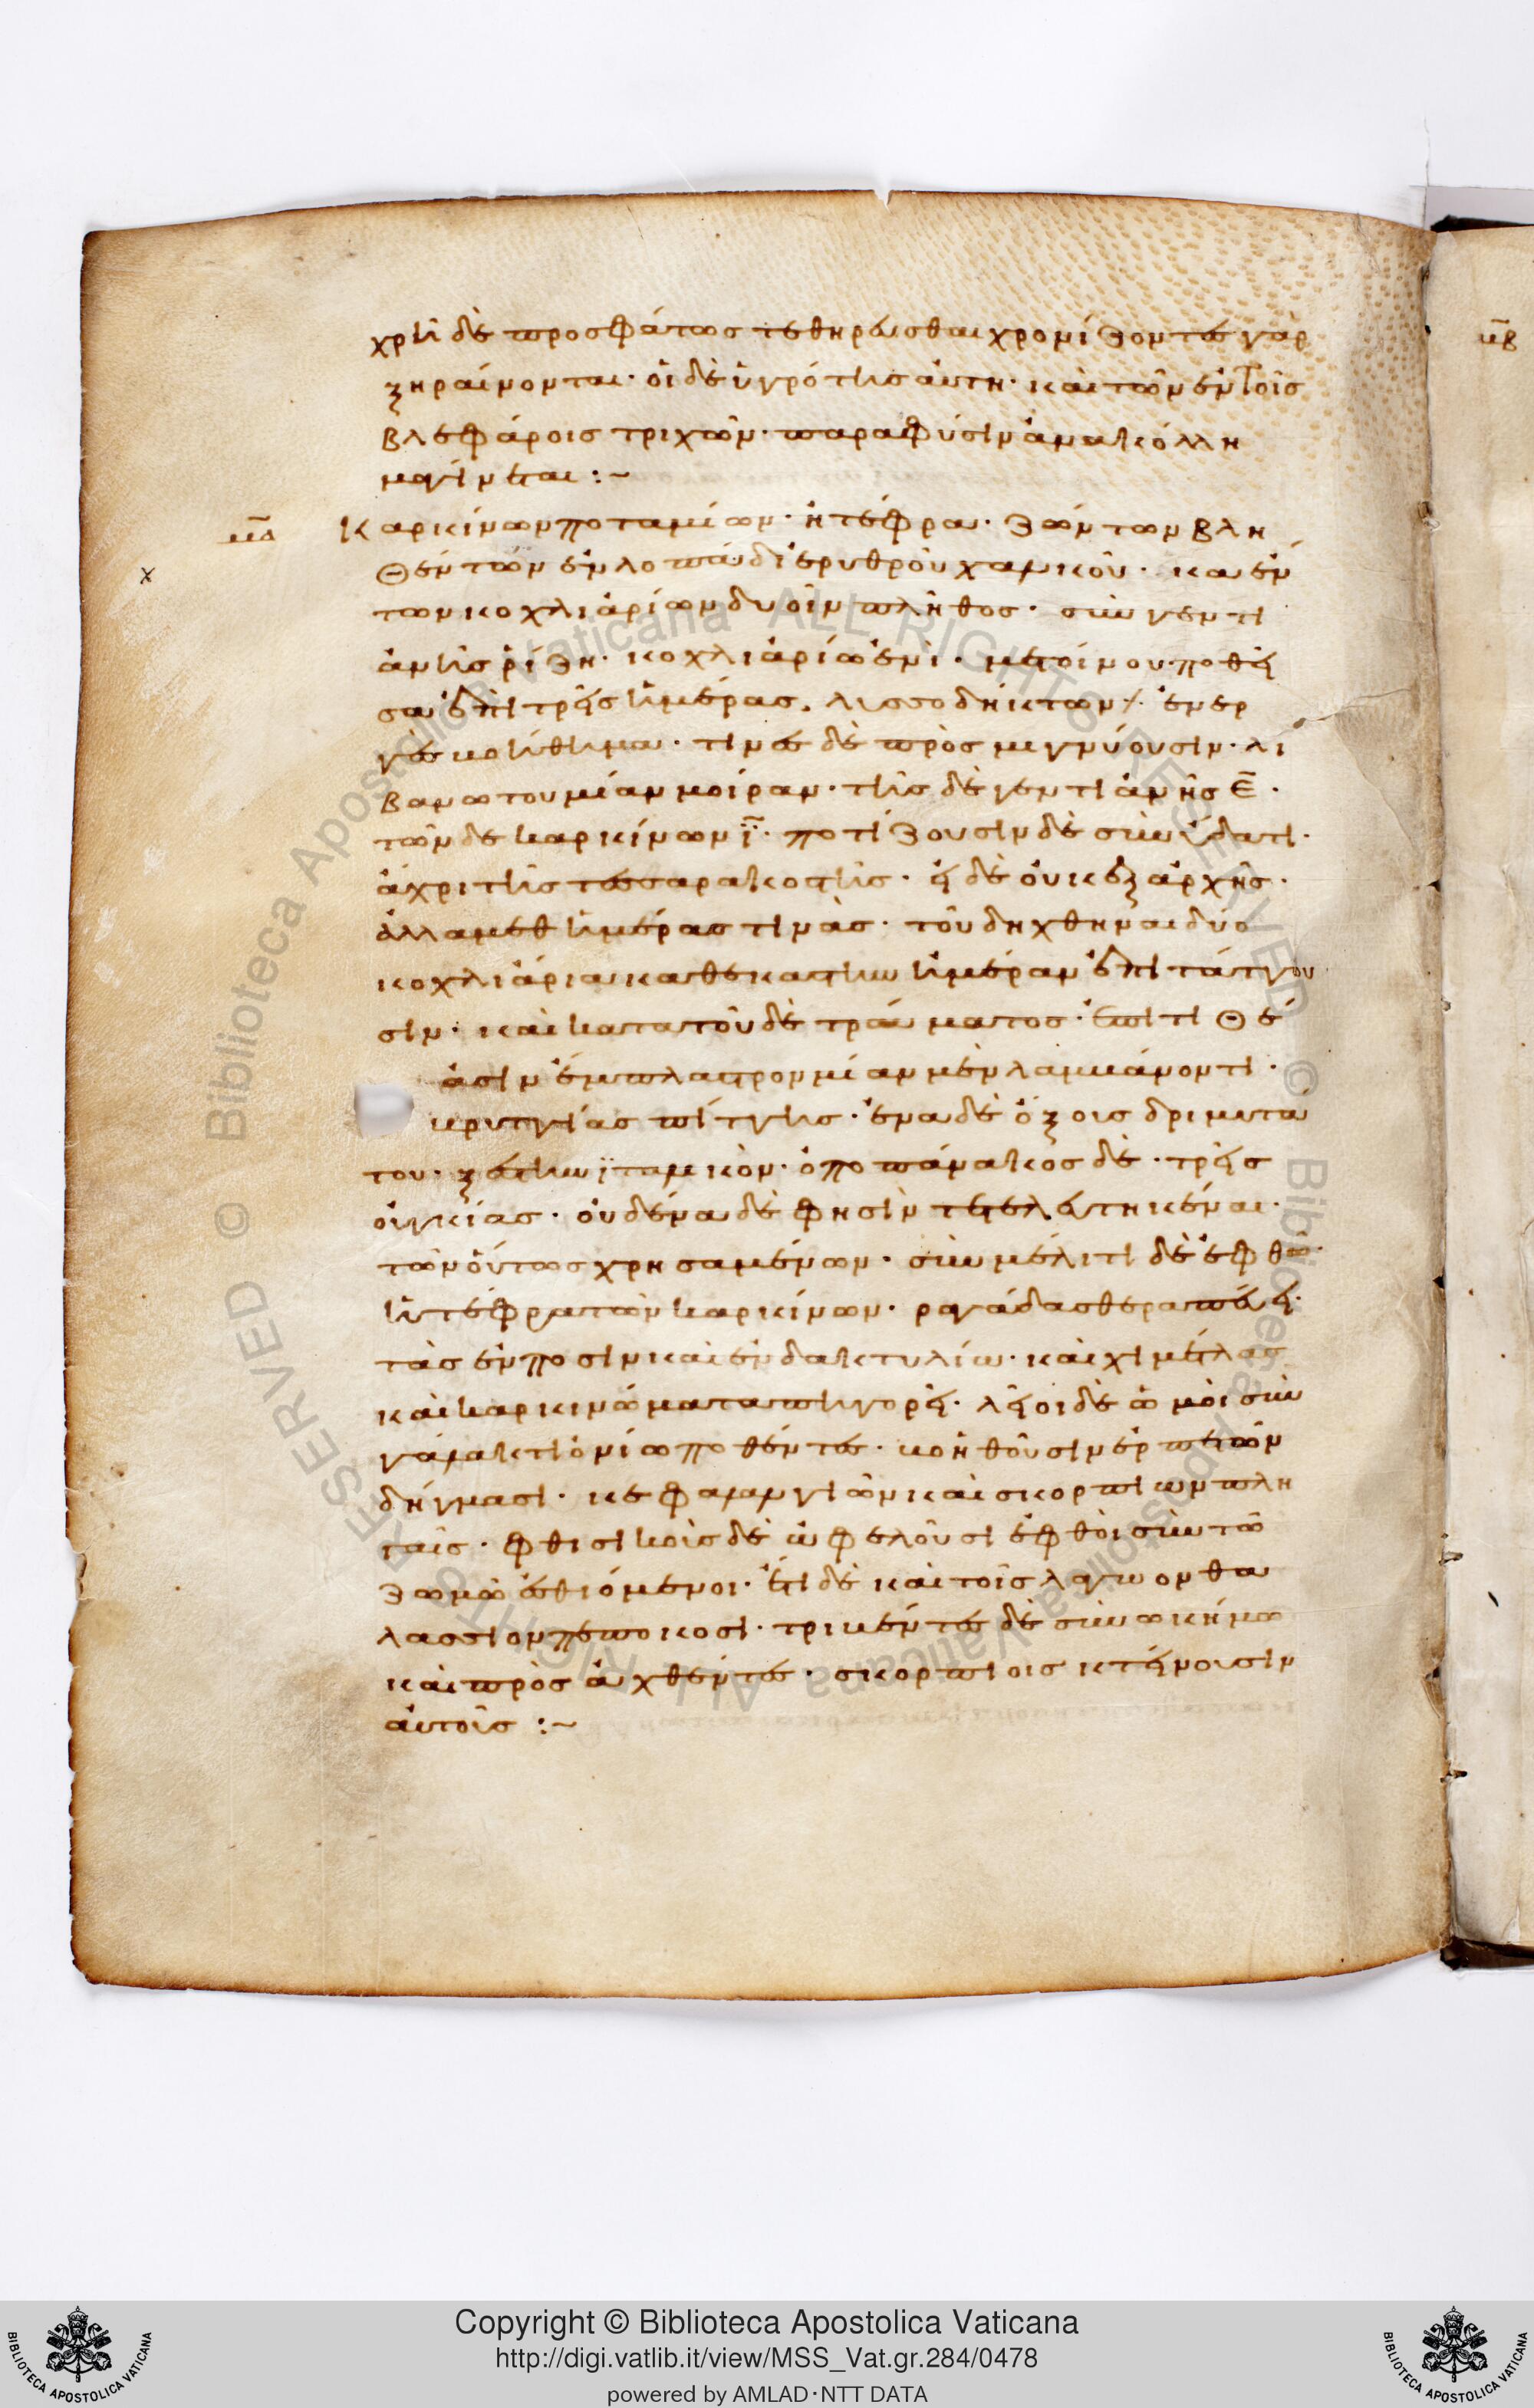 χρὴ δὲ προσφάτως τεθηρᾶισθαι χρονίζοντες γὰρ
ξηραίνονται· οἱ δὲ ὑγρότης ἀυτη· καὶ τῶν ἐν τοῖς
βλεφάροις τριχῶν· παραφύσιν ἀνακόλλη
μα γίνεται :~
μα
Καρκίνων ποταμίων· ἡ τέφρα· ζώντων βλη
θέντων ἐν λοπάδι ἐρυθροῦ χαλκοῦ· καέν
των κοχλιαρίων δυοῖν πλῆθος· σὺν γεντι
ἀνῆς ῥίζη· κοχλιαρίω ἑνὶ· μετ οίνου ποθεῖ
σα ἐπὶ τρεῖς ἡμέρας. λυσσοδήκτων ἐνερ
γὲς βοήθημα· τινὲς δὲ προσμιγνύουσιν· λι
βανωτου μίαν μοίραν· τῆς δὲ γεντιάνης ε̄·
τῶν δὲ καρκίνων ϊ· ποτίζουσιν δὲ σὺν ὕδατι·
ἄχρι τῆς τεσσαρακοστῆς· εἰ δὲ οὐκ ἐξ ἀρχῆς·
ἀλλα μεθ ἡμέρας τινὰς· τοῦ δηχθηναι δύο
κοχλιάρια καθ εκαστην ἡμέραν ἐπιτάττου
σιν· καὶ κατα τοῦ δὲ τραύματος· ἐπιτιθέ
ασιν ἔμπλαστρον μίαν μὲν λαμβάνοντι·
βρυττίας πίττης· ἕνα δὲ ὄξους δριμυτά
του· ξέστην ϊταλικὸν· ὀποπάνακος δὲ· τρεῖς
οὐγκίας· οὐδένα δὲ φησὶν τετελευτηκέναι·
τῶν οὕτως χρησαμένων· σὺν μέλιτι δὲ ἑφθῶ·
ἡ τέφρα τῶν καρκίνων· ραγάδας θεραπεύει·
τὰς ἐν ποσὶν καὶ ἐν δακτυλίω· καὶ χίμετλας
καὶ καρκινώματα παρηγορεῖ· λεῖοι δὲ ὠμοὶ σὺν
γάλακτι ὀνίω ποθέντες· βοηθοῦσιν ἑρπετῶν
δήγμασι· κε φαλαγγίων καὶ σκορπίων πλη
γαῖς· φθισικοῖς δὲ ὠφελοῦσι ἑφθοὶ σὺν τῶ
ζωμῶ ἐσθιόμενοι· ἔτι δὲ καὶ τοῖς λαγωον θα
λασσιον πεποκοσι· τριβέντες δὲ σὺν ωκήμω
καὶ προσαχθέντες· σκορπίοις κτείνουσιν
αυτοῖς :~
μβ
Copyright © Biblioteca Apostolica Vaticana
http://digi.vatlib.it/view/MSS_Vat.gr.284/0478
powered by AMLAD·NTT DATA